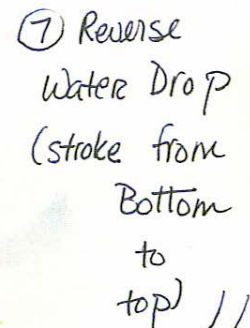 ⑦ Reverse
Water Drop
(stroke from
Bottom
to
top)